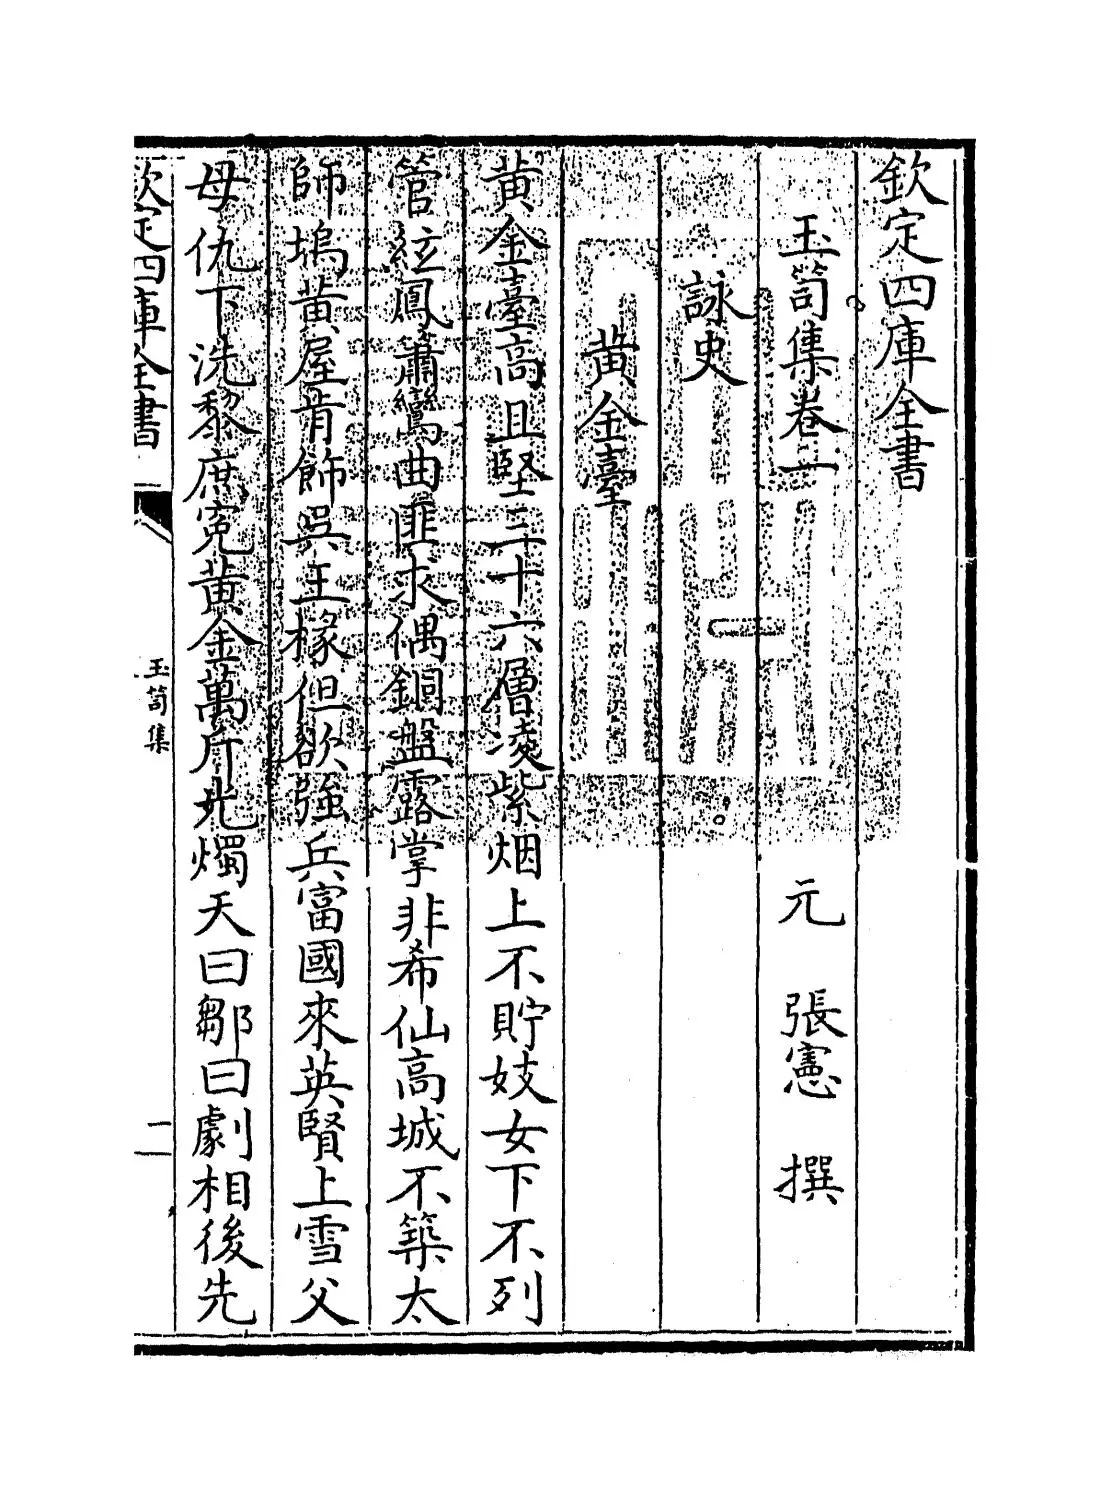 欽定四庫全書
玉笥集卷一
元 張憲 撰
詠史
黃金臺
黃金臺高且堅三十六層凌紫烟上不貯妓女下不列
管絃鳳簫鸞曲匪求偶銅盤露掌非希仙高城不築太
師塢黃屋肯飾吳王椽但欲強兵富國來英賢上雪父
母仇下洗黎庶寃黃金萬斤光燭天曰鄒曰劇相後先
欽定四庫全書
玉笥集
一